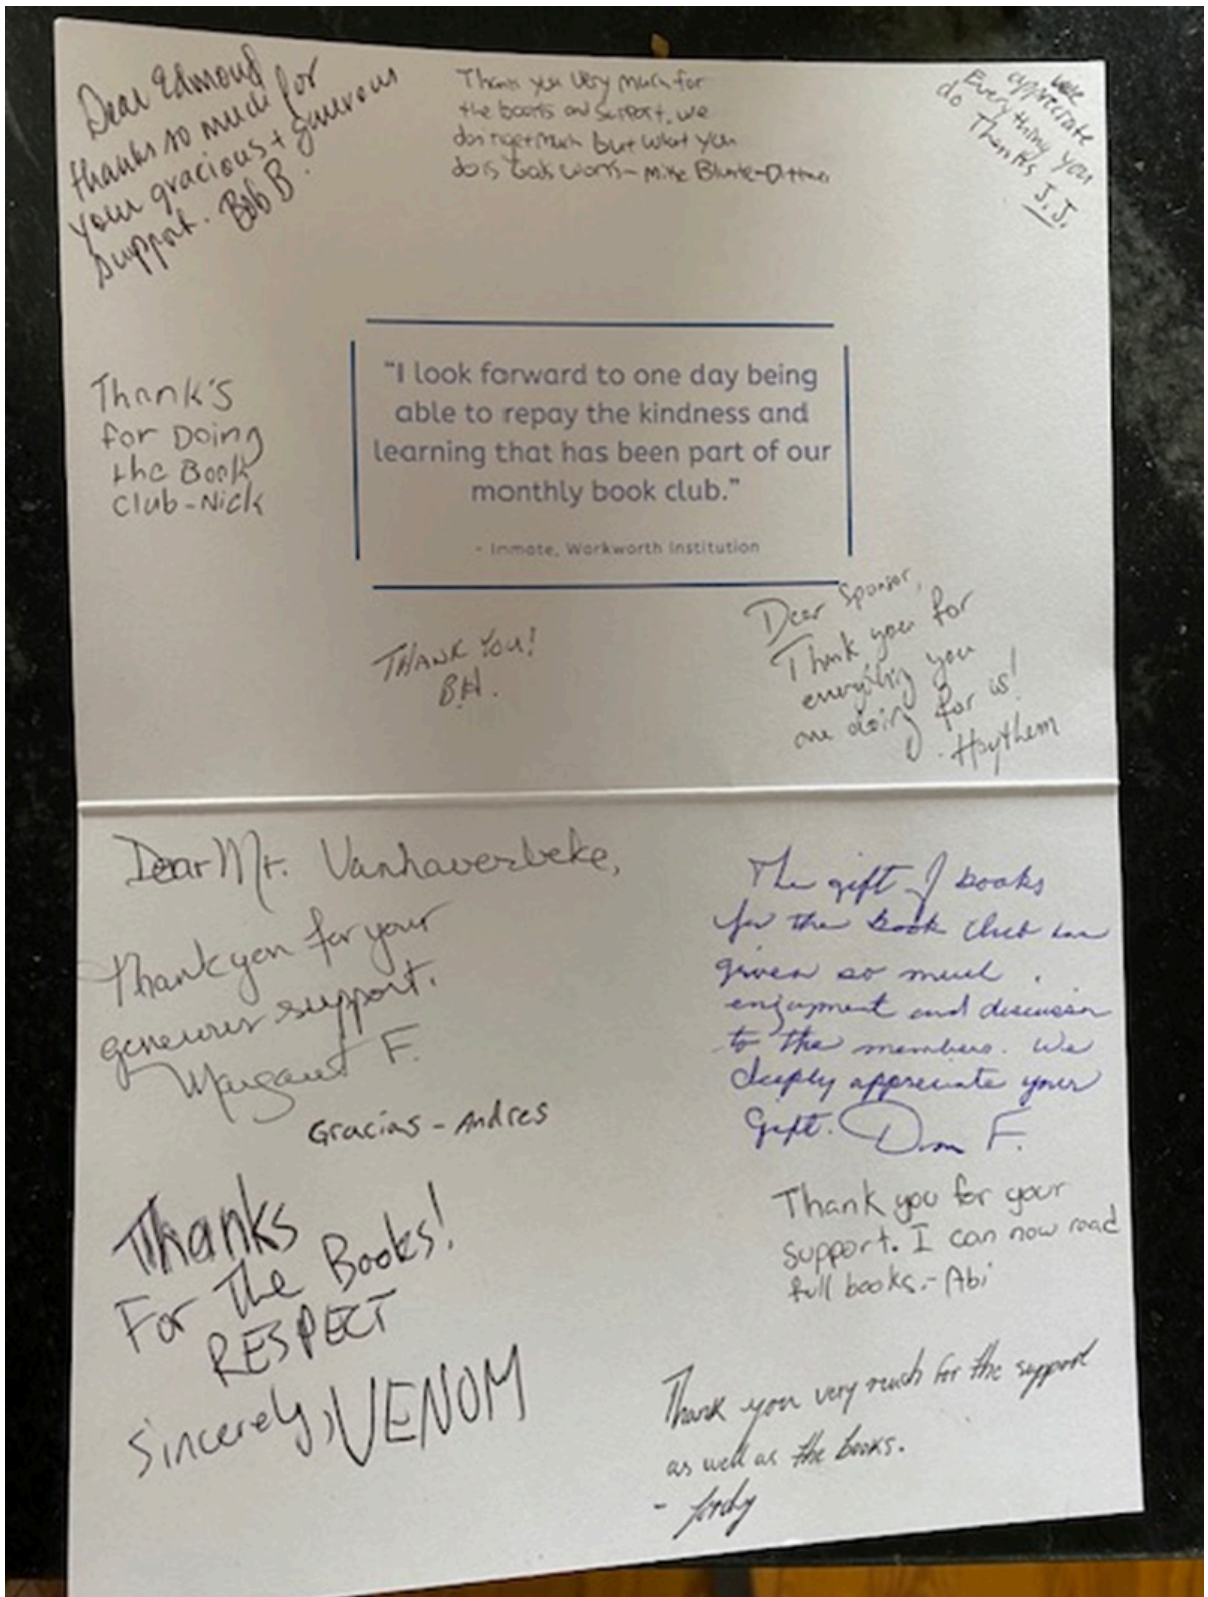 Dear Edmond
thanks so much for
your gracious + generous
support. Bob B.
Thank you very much for
the books and support, we
don't get much but what you
do is Gods work - Mike
We
appreciate
Everything you
do
Thanks
J.J.
Thank's
for Doing
the Book
Club - Nick
"I look forward to one day being
able to repay the kindness and
learning that has been part of our
monthly book club."
- Inmate, Warkworth Institution
THANK YOU!
B.H.
Dear Sponsor,
Thank you for
everything you
are doing for us!
- Haythem
Dear Mr. Vanhaverbeke,
Thank you for your
generous support.
Margaret F.
Gracias - Andres
Thanks
For The Books!
RESPECT
Sincerely, VENOM
The gift of books
for the book club has
given so much
enjoyment and discussion
to the members. We
deeply appreciate your
gift. F.
Thank you for your
support. I can now read
full books. - Abi
Thank you very much for the support
as well as the books.
-